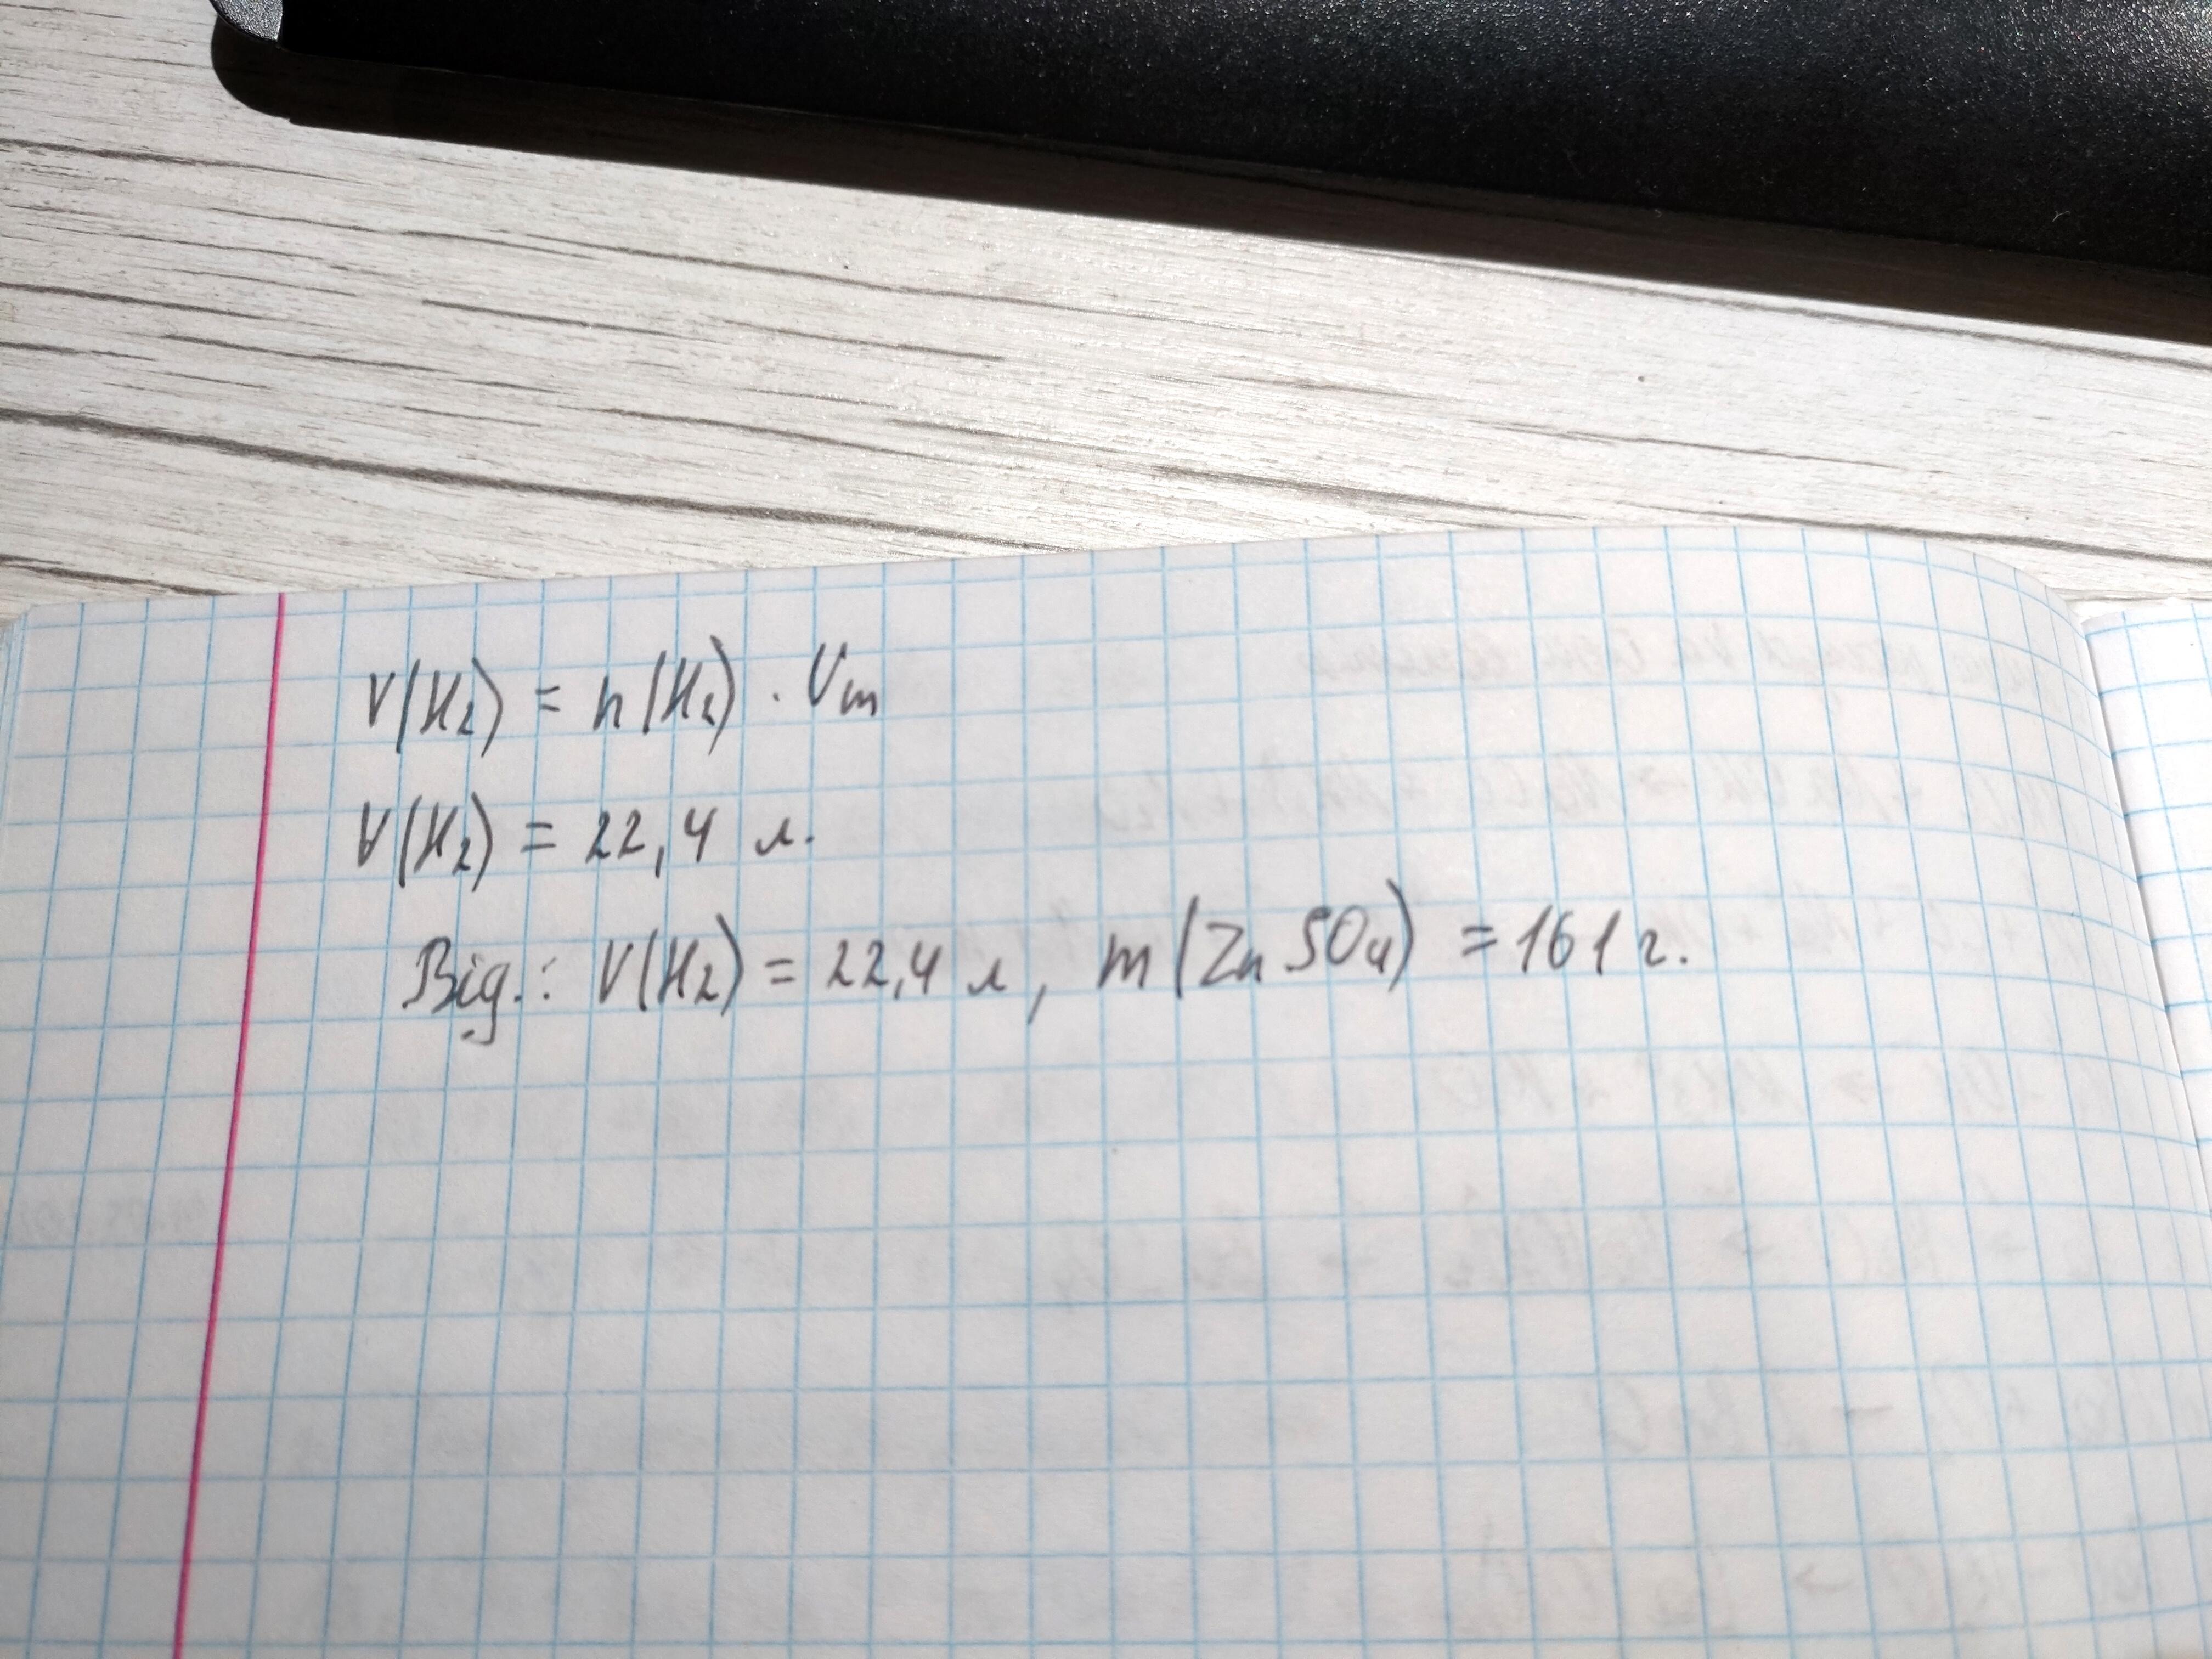 V(H₂) = n(H₂) · Vm
V(H₂) = 22,4 л.
Від.: V(H₂) = 22,4 л, m(ZnSO₄) = 161 г.